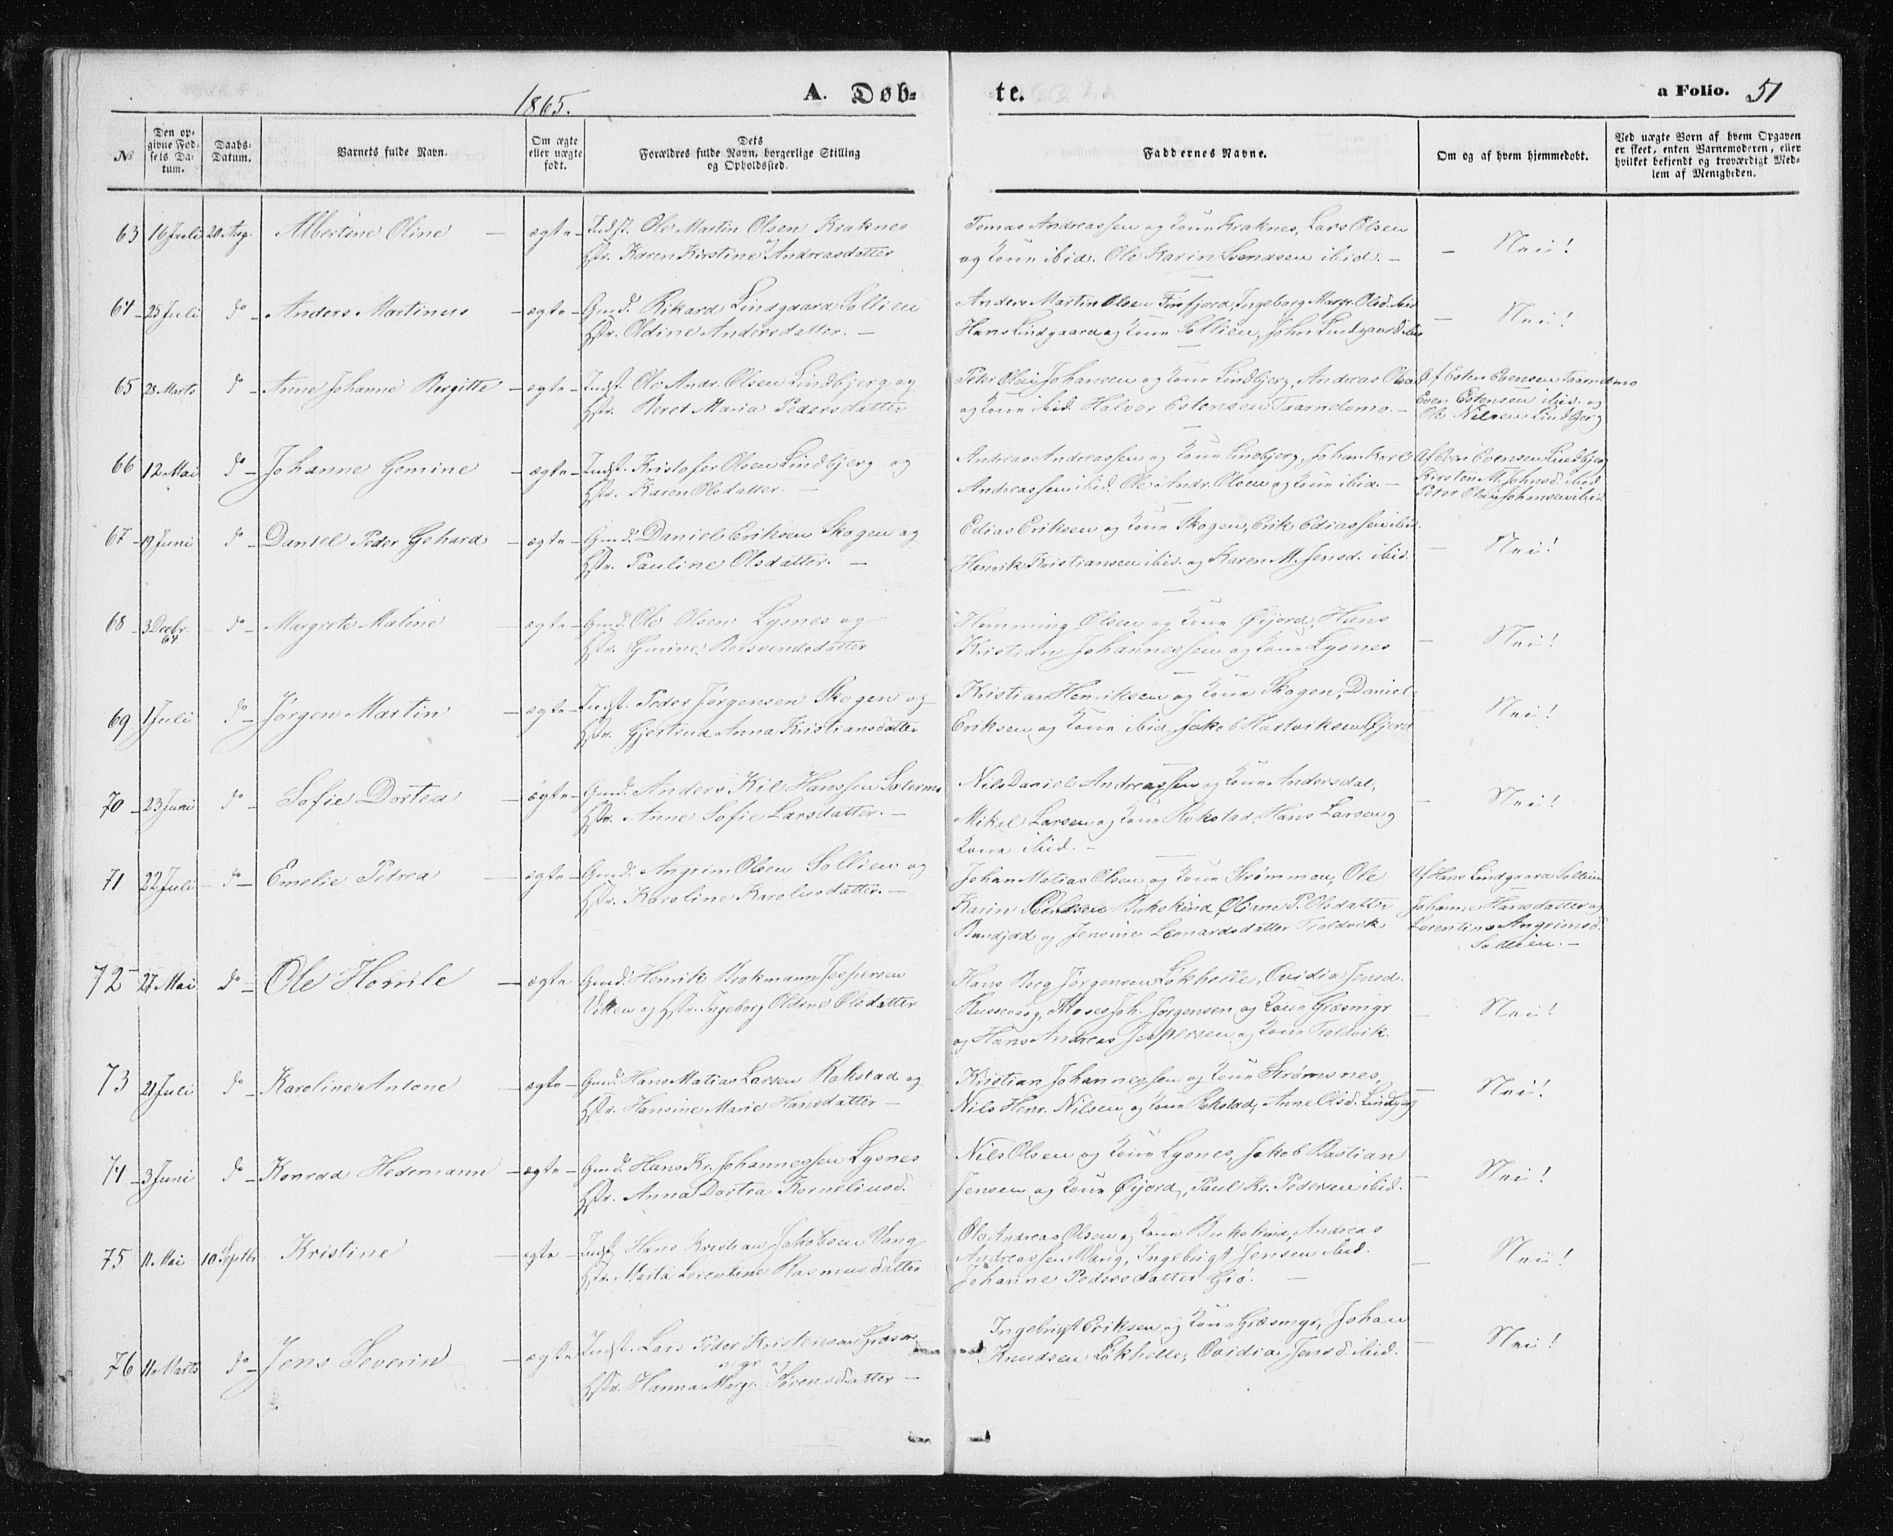 1865.
A. Døb-
te.
a Folio. 51
№
Den op-
givne Fød-
sels Da-
tum.
Daabs-
Datum.
Barnets fulde Navn.
Om ægte
eller uægte
født.
Dets
Forældres fulde Navn, borgerlige Stilling
og Opholdssted.
Faddernes Navne.
Om og af hvem hjemmedøbt.
Ved uægte Børn af hvem Opgaven
er skeet, enten Barnemoderen, eller
hvilket bekjendt og troværdigt Med-
lem af Menigheden.
63 16 Juli 20 Aug. Albertine Oline – ægte – Indst. Ole Martin Olsen Kraknes
Hstr. Karen Kirstine Andreasdatter
Tomas Andreassen og Kone Kraknes, Lars Olsen
og Kone ibid. Ole Karin Svendsen ibid. –
– Nei!
64 25 Juli do – Anders Martinus – ægte – Gmd. Rikard Lindgaard Sollien
Hstr. Oldine Andersdatter. –
Anders Martin Olsen Finfjord, Ingeborg Margr. Olsd. ibid
Hans Lindgaard og Kone Sollien, John Lindgaard ibid
– Nei!
65 28 Marts do – Anne Johanne Bergitte – ægte – Indst. Ole Andr. Olsen Lindbjerg og
Hstr. Beret Maria Pedersdatter
Peter Olai Johansen og Kone Lindbjerg, Andreas Olsen
og Kone ibid. Halvor Estensen Trændomo. –
Af Esten Evensen Trændomo
Even Estensen ibid. og
Ole Nilsen Lindbjerg
66 12 Mai do – Johanne Gemine – ægte – Indst. Kristofer Olsen Lindbjerg og
Hstr. Karen Olsdatter.
Andreas Andreassen og Kone Lindbjerg, Johan Korel
Andreassen ibid. Ole Andr. Olsen og Kone ibid. –
Af Even Evensen Lindbjerg
Kirsten M. Johnsd. ibid
Peter Olai Johansen ibid.
67 – 19 Juni do – Daniel Peder Gehard – ægte – Gmd. Daniel Eriksen Skogen og
Hstr. Pauline Olsdatter. –
Edias Eriksen og Kone Skogen, Erik Ediassen ibid.
Henrik Kristiansen ibid. og Karen M. Jensd. ibid.
– Nei!
68 – 3 Decbr. 64 do – Margrete Maline – ægte – Gmd. Ole Olsen Lysnes og
Hstr. Gurine Bersvendsdatter
Hemming Olsen og Kone Øijord, Hans
Kristian Johannessen og Kone Lysnes
– Nei!
69 1 Juli do – Jørgen Martin – ægte – Indst. Peder Jørgensen Skogen og
Hstr. Gjertrud Anna Kristiansdatter
Kristian Henriksen og Kone Skogen, Daniel
Eriksen og Kone ibid, Jakob Hartviksen Øijord
– Nei!
70 – 23 Juni do – Sofie Dortea – ægte – Gmd. Anders Kil Hanssen
Hstr. Anne Sofie Larsdatter. –
Nils Daniel Andreassen og Kone Andersdal,
Mikal Larsen og Kone Rokstad, Hans Larsen og
Kone ibid. –
– Nei!
71 22 Juli – do – Emelie Petrea – ægte – Gmd. Angrim Olsen Sollien og
Hstr. Karoline Karolusdatter. –
Johan Matias Olsen og Kone Strømmen, Ole
Karin Svendsen Bukskind, Oliane P. Olsdatter
Bundjord og Jensine Leonardsdatter Troldvik
Af Hans Lindgaard Sollien
Johanne Hansdatter og
Lorentine Angrimsd.
Sollien. –
72 – 27 Mai do – Ole Hornle – ægte Gmd. Henrik Brokmann Jespersen
Vikken og Hstr. Ingeborg Oldine Olsdatter
Hans Borg Jørgensen Løkhelle, Ovidia Jensd.
Russevog, Moses Joh. Jørgensen og Kone Græsmyr
og Hans Andreas Jespersen og Kone Troldvik.
– Nei!
73 21 Juli do – Karoline Antone – ægte – Gmd. Hans Matias Larsen Rokstad og
Hstr. Hansine Marie Hansdatter –
Kristian Johannessen og Kone Strømsnes,
Nils Henr. Nilsen og Kone Rokstad, Anne Olsd. Lindbjerg
– Nei!
74 – 3 Juni do – Konrad Hedemann – ægte – Gmd. Hans Kr. Johannessen Lysnes
Hstr. Anna Dortea Korneliusd.
Nils Olsen og Kone Lysnes, Jakob Bastian
Jensen og Kone Øijord, Paul Kr. Pedersen ibid.
– Nei!
75 11 Mai 10 Septbr Kristine – ægte – Indst. Hans Kristian Jakobsen Vang
Hstr. Marta Lorentine Rasmusdatter
Ole Andreas Olsen og Kone Bukskind, Andreas
Andreassen Vang, Ingebrigt Jensen ibid.
Johanne Pedersdatter Giø. –
– Nei!
76 11 Marts do – Jens Severin – ægte Indst. Lars Peder Kristensen Græs-
myr og
Hstr. Hanna Margr. Sørensdatter –
Ingebrigt Eriksen og Kone Græsmyr, Johan
Knudsen Løkhelle, Ovidia Jensd. ibid.
– Nei!